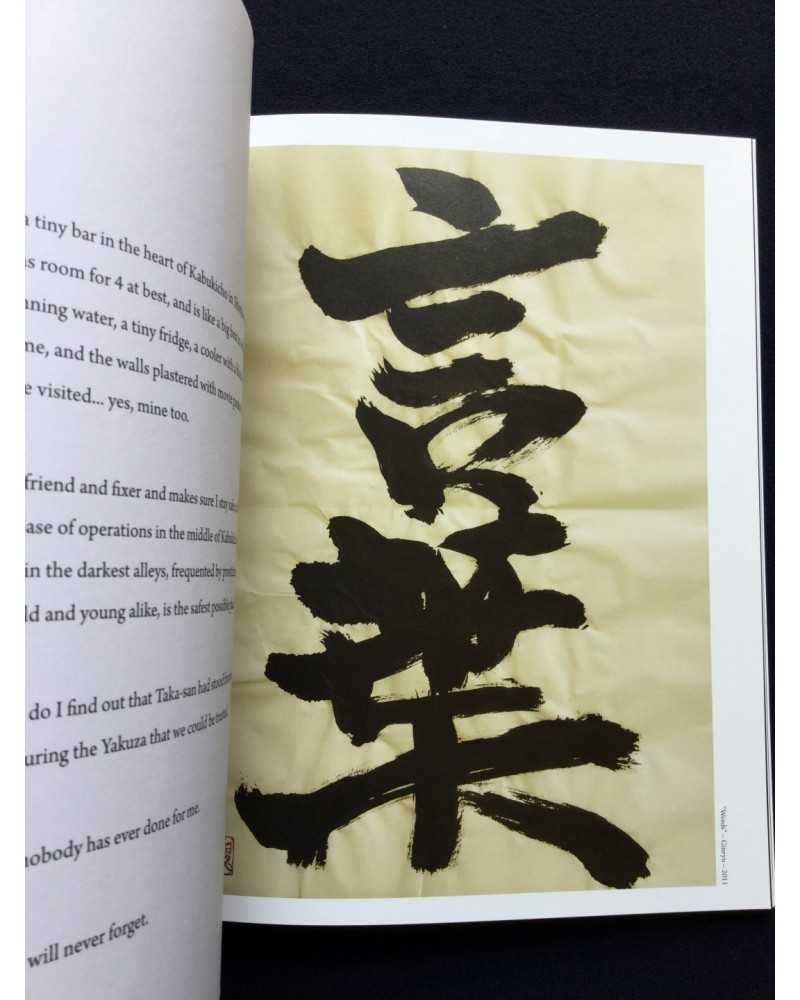 a tiny bar in the heart of Kabukicho in
room for 4 at best, and is like a big
water, a tiny fridge, a cooler with a
and the walls plastered with movie
visited... yes, mine too.
friend and fixer and makes sure I stay
of operations in the middle of
in the darkest alleys, frequented by
and young alike, is the safest possible
do I find out that Taka-san had stood
the Yakuza that we could be
nobody has ever done for me.
will never forget.
言葉
"Words" – – 2011